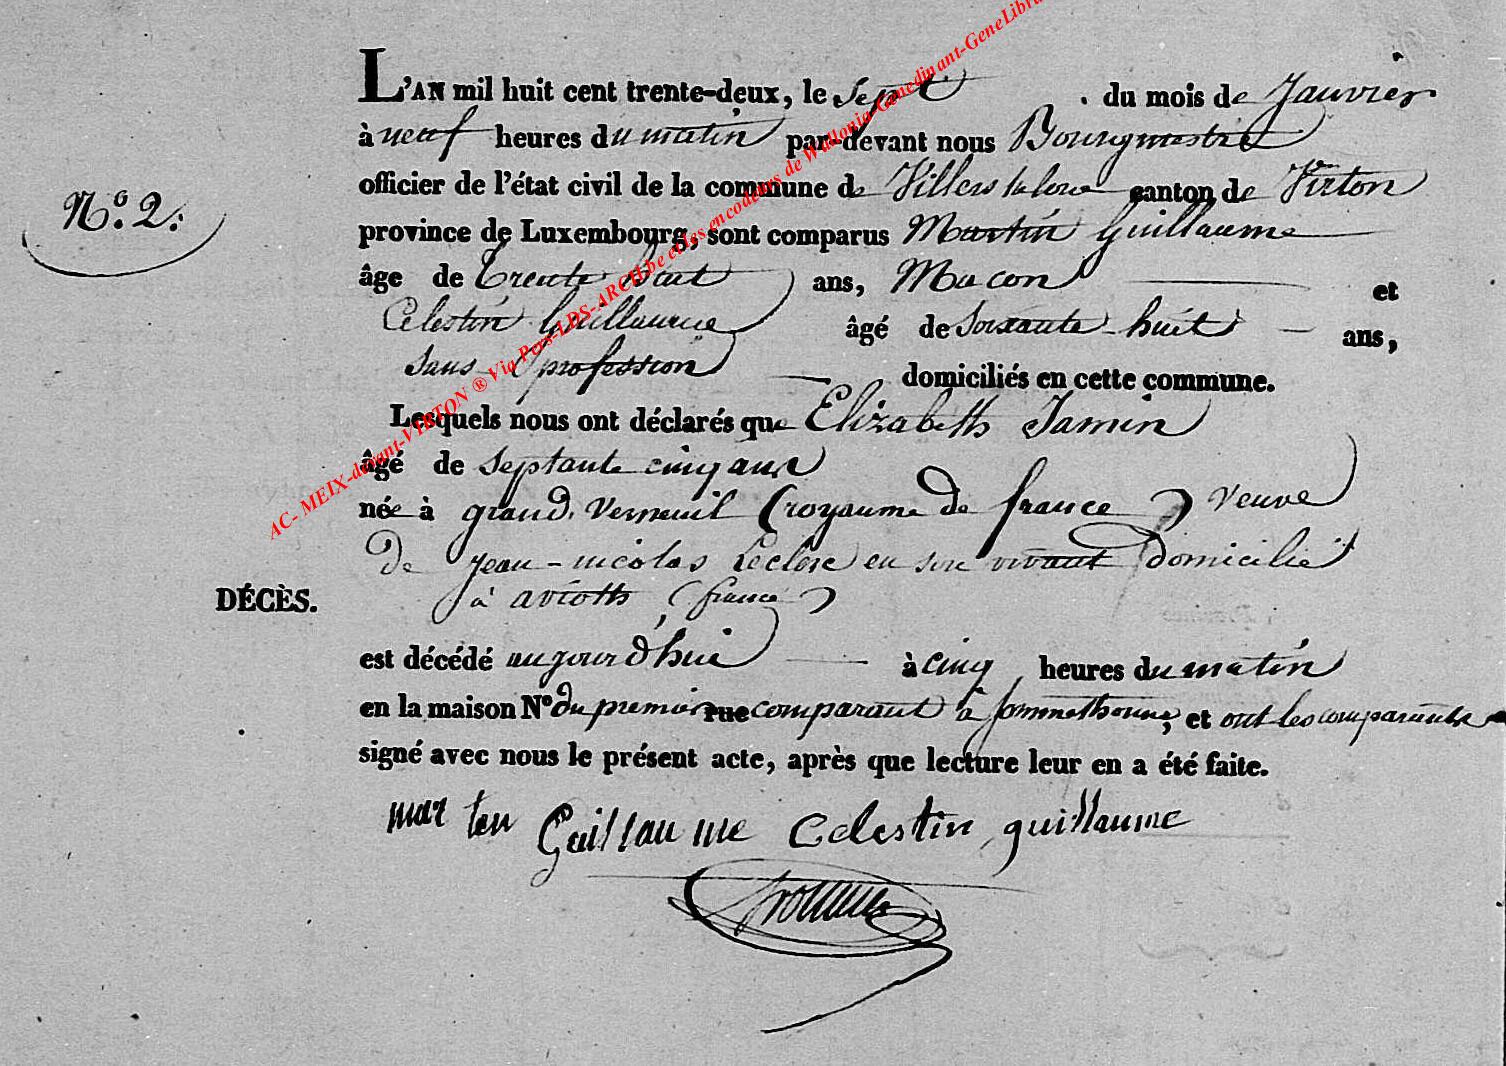 L'AN mil huit cent trente-deux, le Sept du mois de Janvier
à neuf heures du matin par-devant nous Bourgmestre
officier de l'état civil de la commune de Villers la loue canton de Virton
N.º 2.
province de Luxembourg, sont comparus Martin Guillaume
âge de trente huit ans, Macon et
Celestin Guillaume âgé de Soixante huit ans,
Sans profession domiciliés en cette commune.
Lesquels nous ont déclarés que Elizabeth Jamin
âgé de Septante cinq ans
née à grand Verneuil (royaume de france) veuve
de jean-nicolas Leclere en son vivant domicilié
DÉCÈS.
à avioth (france)
est décédé aujourd'hui à cinq heures du matin
en la maison Nº du premier rue comparant à Sommethonne, et ont les comparants
signé avec nous le présent acte, après que lecture leur en a été faite.
mar ten Guillaume Celestin guillaume
AC- MEIX-devant-VIRTON ® Via Pers-LDS-ARCH.be et les encodeurs de Wallonia-Genedinant-GeneLibra